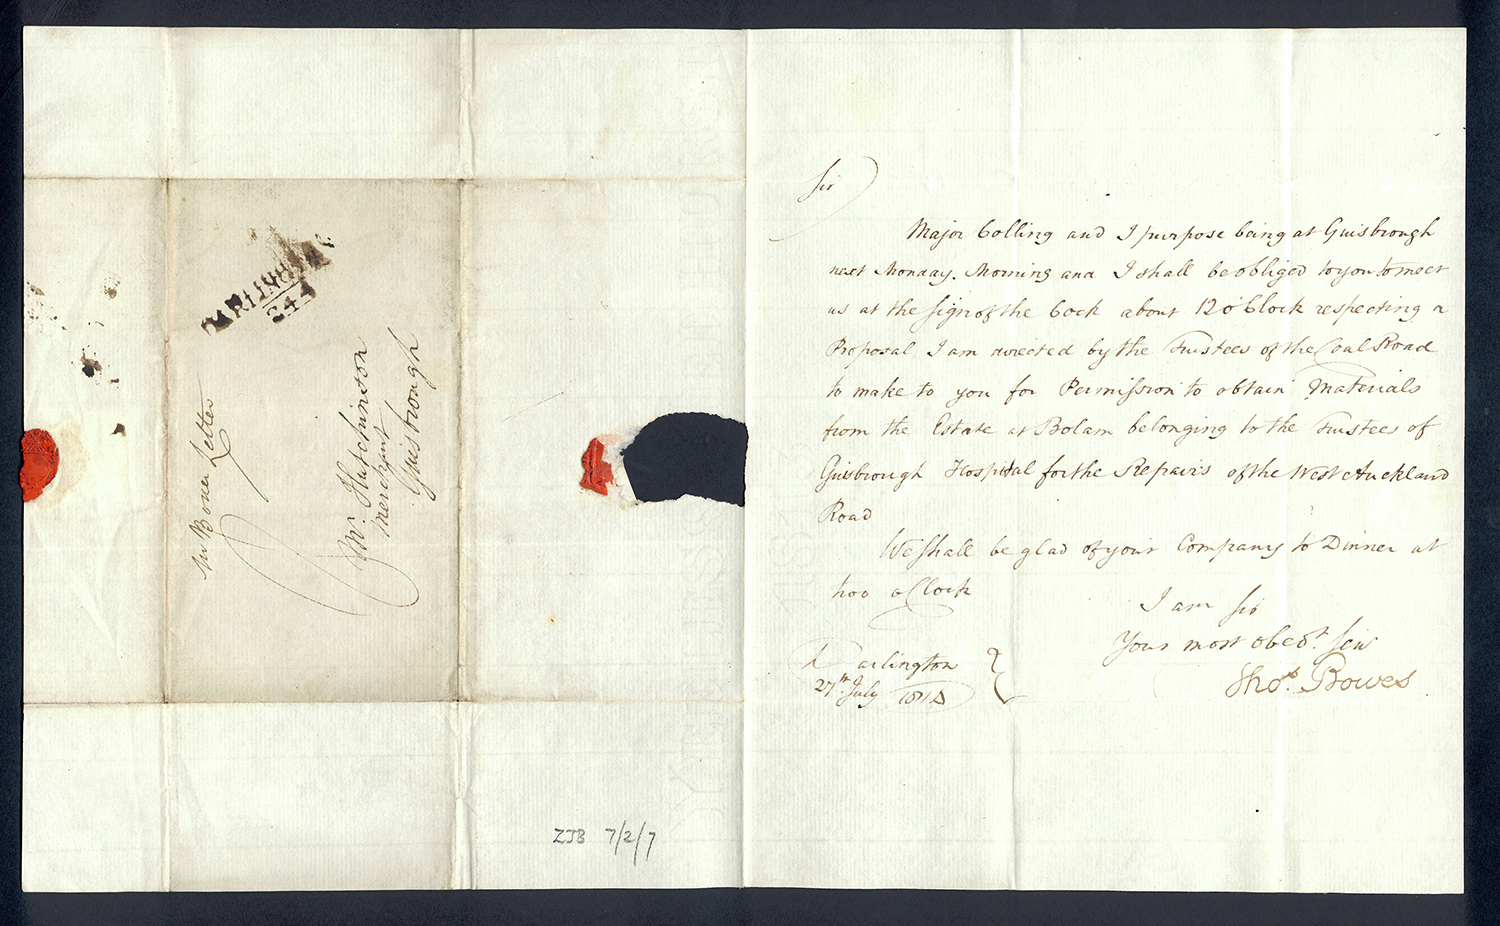 DARLINGTON
244
Mr Bowes Letter
Mr. Hutchinson
Merchant
Guisbrough
ZJB 7/2/7
Sir
Major Colling and I purpose being at Guisbrough
next Monday Morning and I shall be obliged to you to meet
us at the Sign of the Cock about 12 o'Clock respecting a
Proposal I am directed by the Trustees of the Coal Road
to make to you for Permission to obtain Materials
from the Estate at Bolam belonging to the Trustees of
Guisbrough Hospital for the Repairs of the West Auckland
Road
We shall be glad of your Company to Dinner at
two o Clock
I am Sir
Your most obedt. Serv
Thos. Bowes
Darlington
27th July 1814